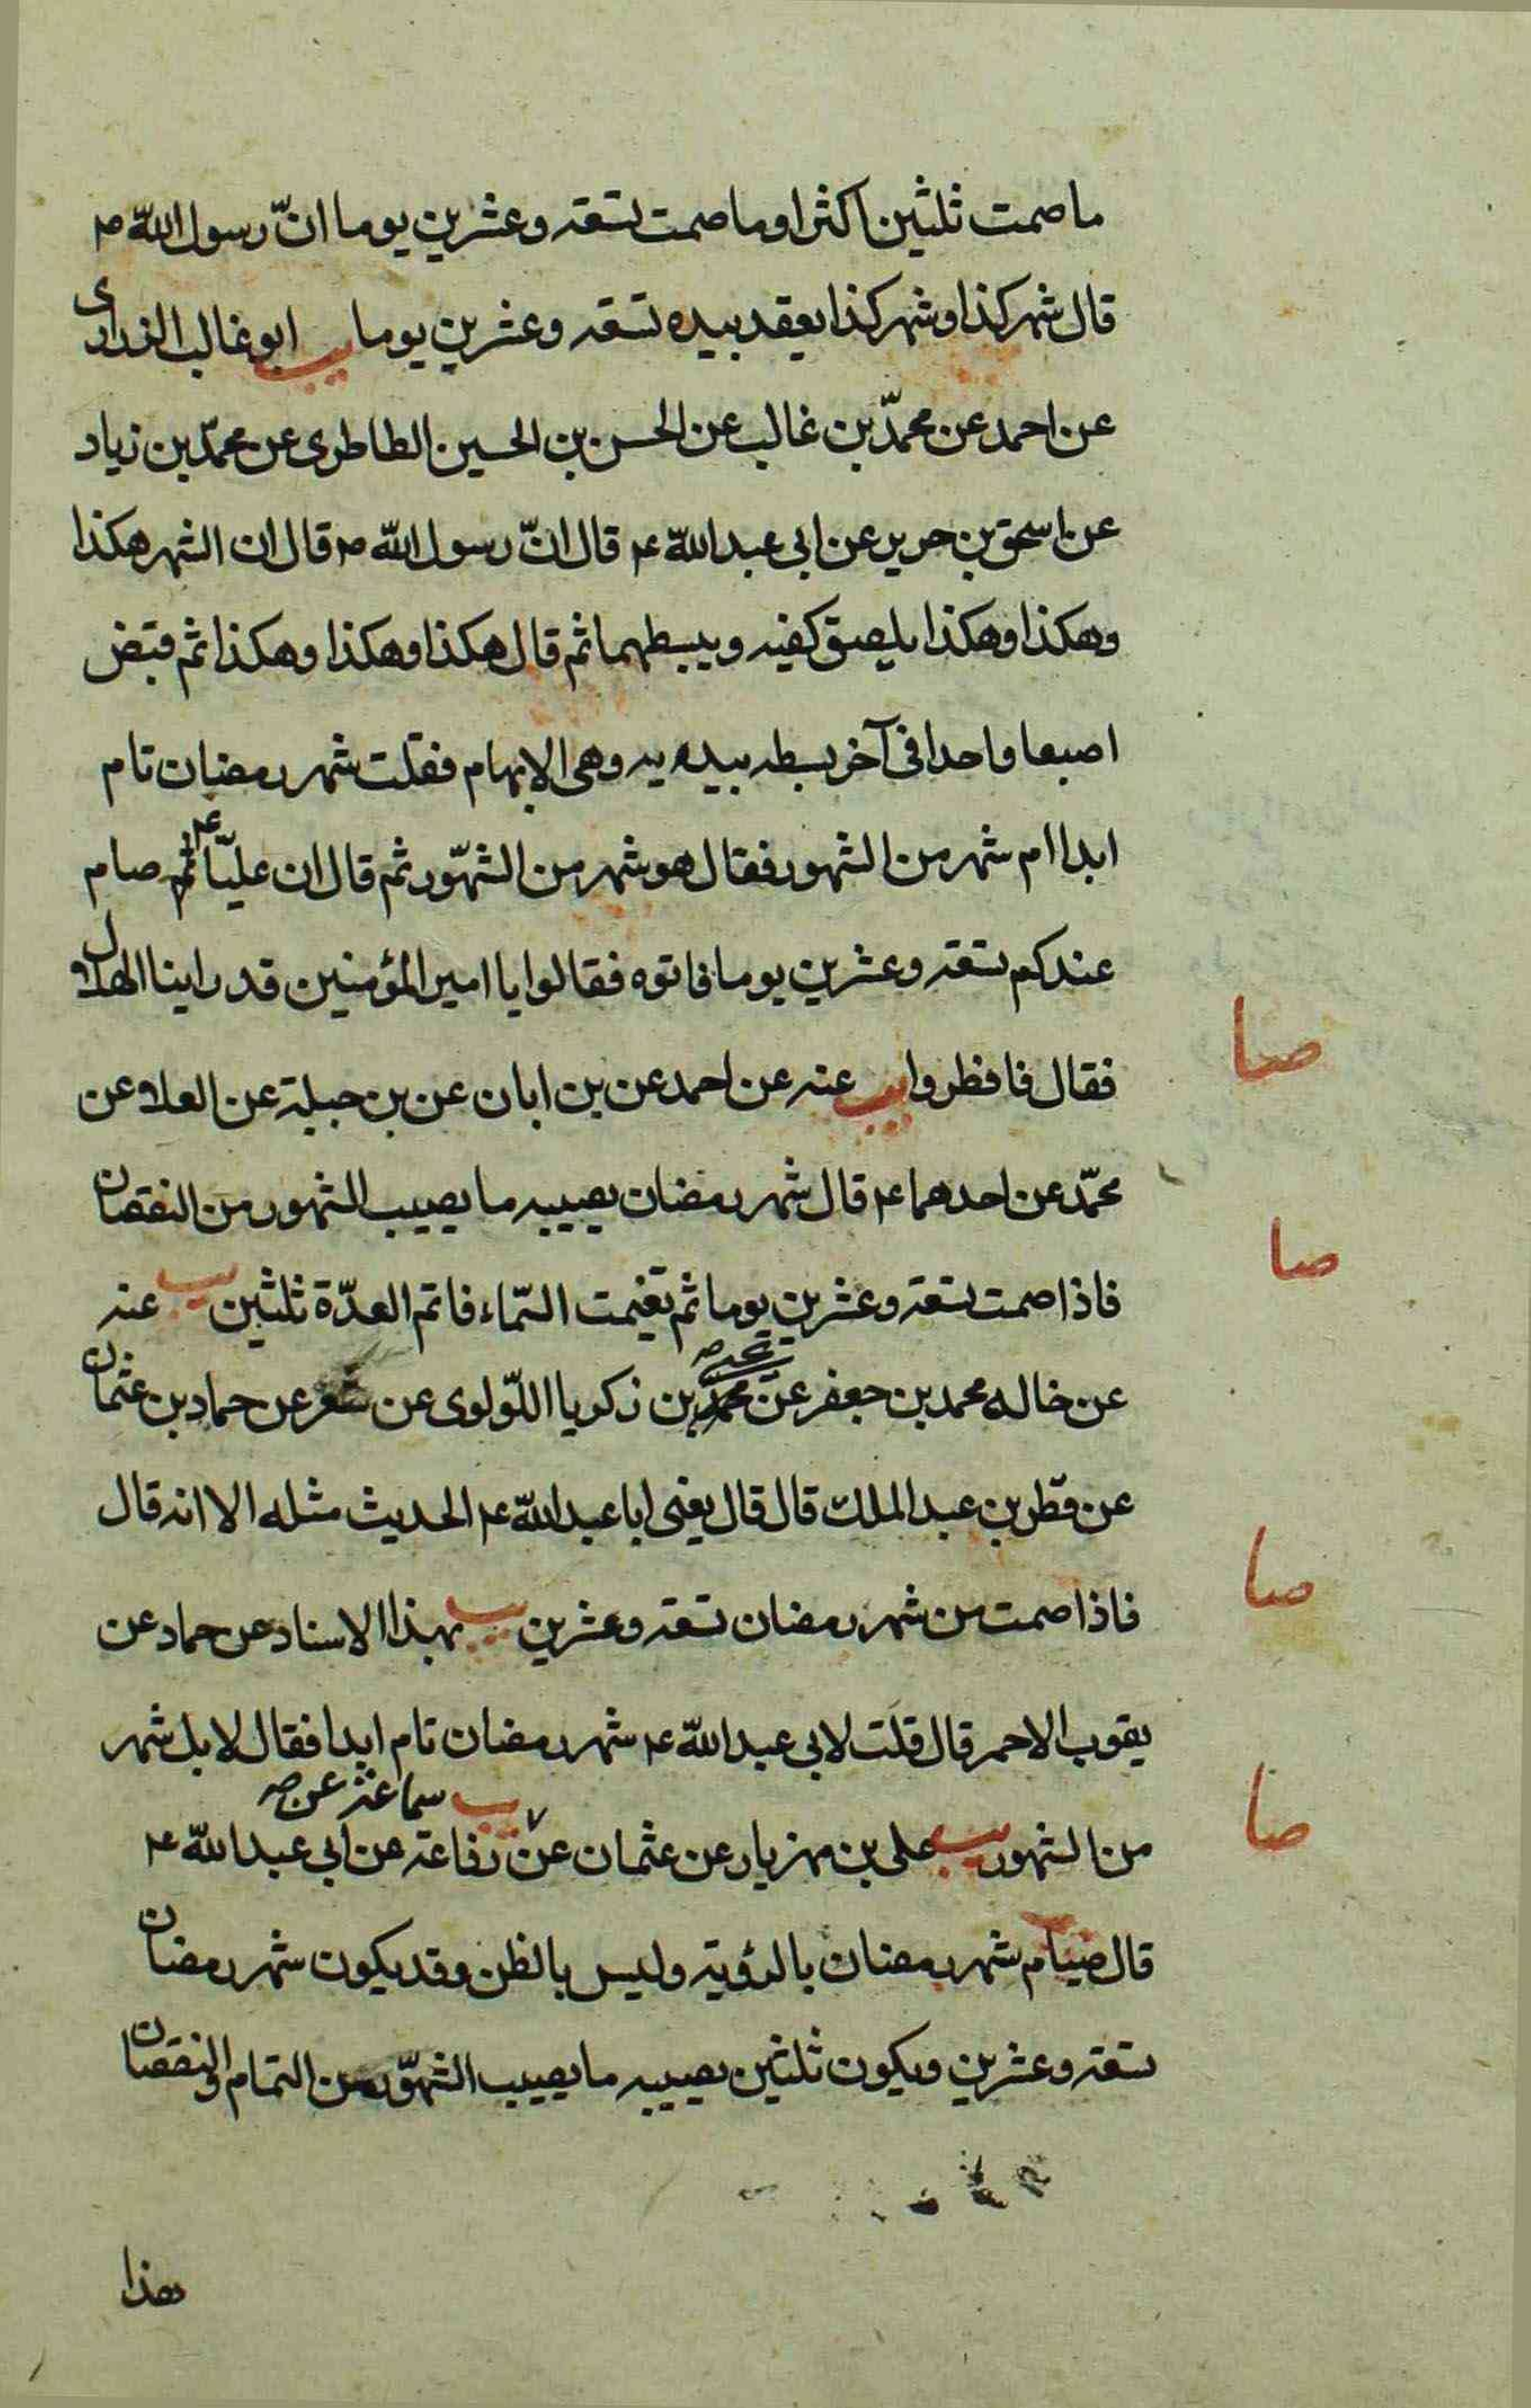 ما صمت ثلثين اكثر او ما صمت تسعة وعشرين يوما انّ رسول اللّه ص
قال شهر كذا وشهر كذا يعقد بيده تسعة وعشرين يوما يب ابو غالب الزراري
عن احمد عن محمّد بن غالب عن الحسن بن الحسين الطاطرى عن محمّد بن زياد
عن اسحق بن حرير عن ابى عبد اللّه ع قال انّ رسول اللّه ص قال ان الشهر هكذا
وهكذا وهكذا يلصق كفيه ويبسطهما ثم قال هكذا وهكذا وهكذا ثم قبض
اصبعا واحدا فى آخر بسطه بيديه وهى الابهام فقلت شهر رمضان تام
ابدا ام شهر من الشهور فقال هو شهر من الشهّور ثم قال ان عليّا ع صام
عندكم تسعة وعشرين يوما فاتوه فقالوا يا امير المؤمنين قد راينا الهلال
صا
فقال فافطروا يب عنه عن احمد عن بن ابان عن بن جبلة عن العلا عن
محمّد عن احدهما ع قال شهر رمضان يصيبه ما يصيب الشهور من النقصان
صا
فاذا صمت تسعة وعشرين يوما ثم تغيمت السّماء فاتم العدّة ثلثين يب عنه
عن خاله محمد بن جعفر عن يحيى بن زكريا اللّولوى عن شعر عن حماد بن عثمان
عن قطر بن عبد الملك قال قال يعنى ابا عبد اللّه ع الحديث مثله الا انه قال
صا
فاذا صمت من شهر رمضان تسعة وعشرين يب بهذا الاسناد عن حماد عن
يقوب الاحمر قال قلت لابى عبد اللّه ع شهر رمضان تام ابدا فقال لا بل شهر
صا
يب سماعة عن صح
من الشهور يب على بن مهزيار عن عثمان عن رفاعة عن ابى عبد اللّه ع
قال صيام شهر رمضان بالرؤية وليس بالظن وقد يكون شهر رمضان
تسعة وعشرين ويكون ثلثين يصيبه ما يصيب الشهّور من التمام والنقصان
هذا